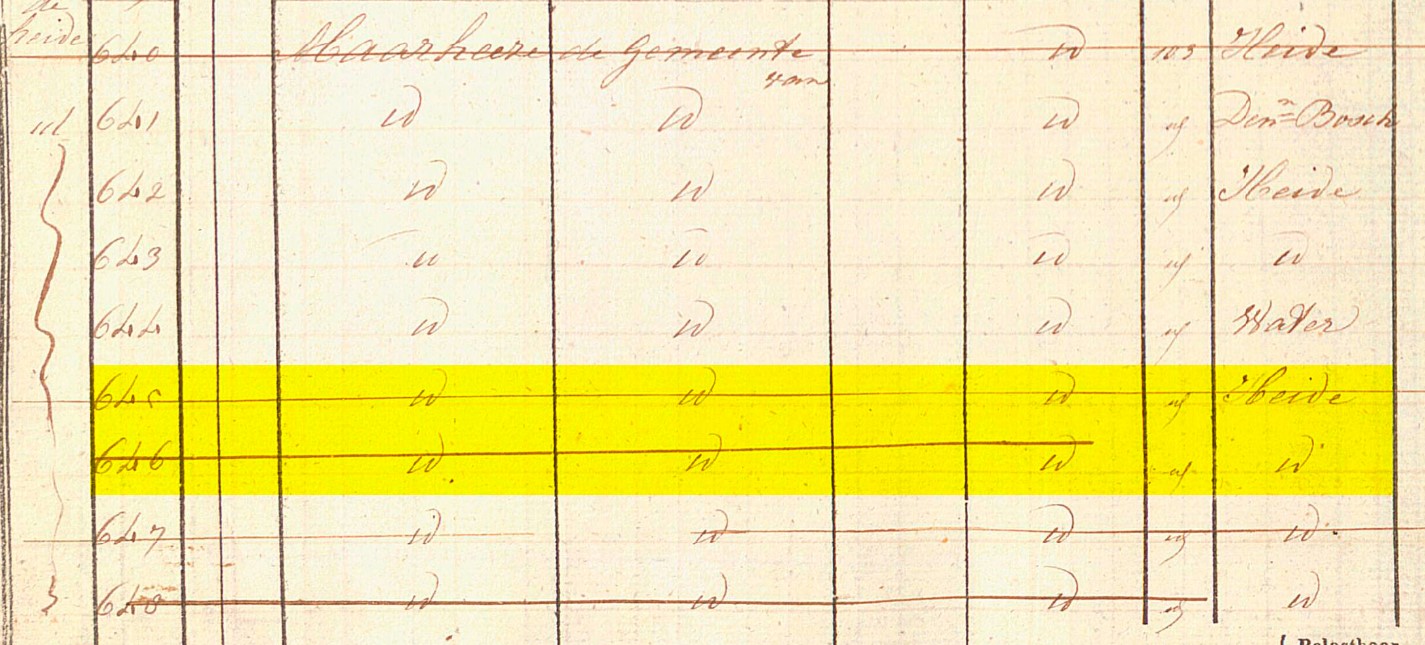 de
heide 640 Maarheeze de Gemeente id 103 Heide
van
id 641 id id id id Denne Bosch
642 id id id id Heide
643 id id id id id
644 id id id id Water
645 id id id id Heide
646 id id id id id
647 id id id id id
648 id id id id id